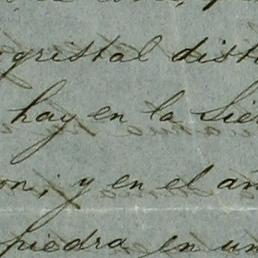 gristal dist
hay en la Sie
on; y en el añ
piedra en un